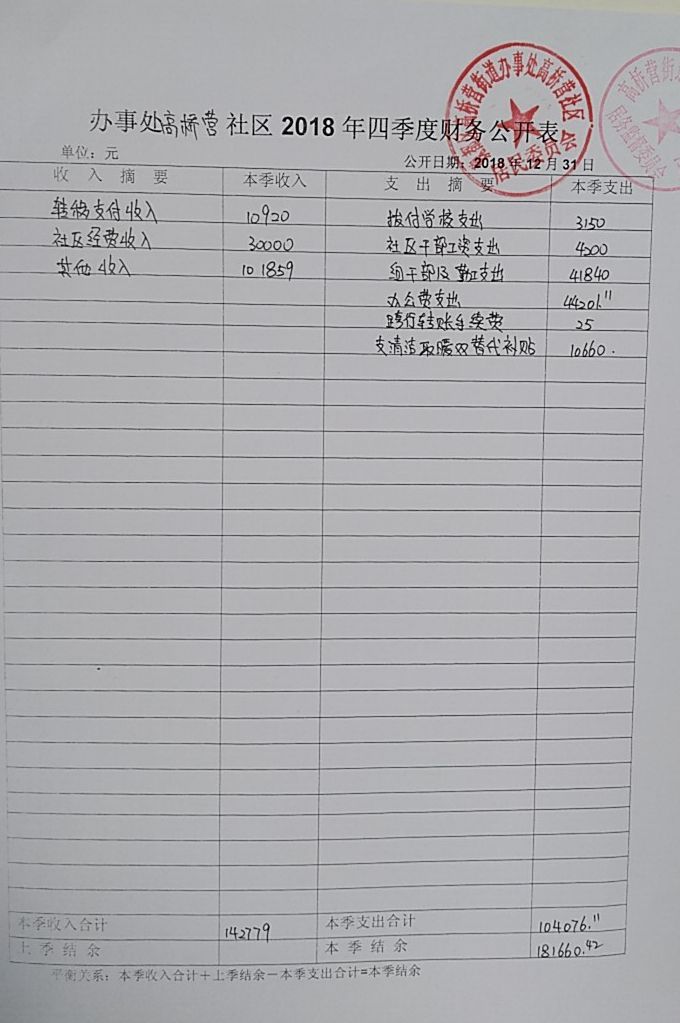 办事处高桥营社区 2018 年四季度财务公开表
单位：元 公开日期：2018 年 12 月 31 日
收 入 摘 要 本季收入 支 出 摘 要 本季支出
转移支付收入 10920 拔付学校支出 3150
社区经费收入 30000 社区干部工资支出 4200
其他收入 101859 组干部及勤工支出 41840
办公费支出 44201.11
跨行转账手续费 25
支清洁取暖双替代补贴 10660.
本季收入合计 142779 本季支出合计 104076.11
上 季 结 余 本 季 结 余 181660.42
平衡关系：本季收入合计＋上季结余－本季支出合计=本季结余
桥营街道办事处高桥营社区
居民委员会
高桥营街
居务监督委员会